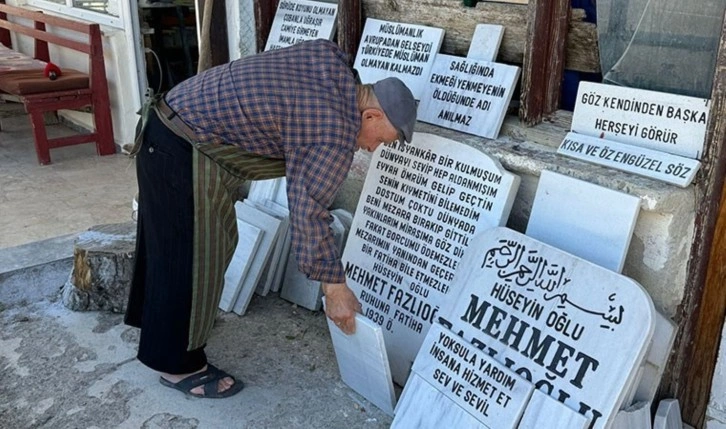 GÖRÜŞE KOYUN OLMAYAN
ÇOBANLA UĞRAŞIR
CAMİYE GİRMEYEN
İMAMLA
MÜSLÜMANLIK
AVRUPADAN GELSEYDİ
TÜRKİYEDE MÜSLÜMAN
OLMAYAN KALMAZDI
SAĞLIĞINDA
EKMEĞİ YENMEYENİN
ÖLDÜĞÜNDE ADI
ANILMAZ
GÖZ KENDİNDEN BAŞKA
HERŞEYİ GÖRÜR
KISA VE ÖZ ENGÜZEL SÖZ
BİR KULMUŞUM
DÜNYAYI SEVİP HEP ALDANMIŞIM
EYVAH ÖMRÜM GELİP GEÇTİN
SENİN KIYMETİNİ BİLEMEDİM
DOSTUM ÇOKTU DÜNYADA
BENİ MEZARA BIRAKIP GİTTİLER
YAKINLARIM MİRASIMA GÖZ
FAKAT BORCUMU ÖDEMEZLER
MEZARIMIN YANINDAN GEÇER
FATİHA BİLE ETMEZLER
HÜSEYİN OĞLU
MEHMET FAZLIOĞLU
RUHUNA FATİHA
1939 Ö.
بسم الله الرحمن الرحيم
HÜSEYİN OĞLU
MEHMET
FAZLIOĞLU
YOKSULA YARDIM
İNSANA HİZMET ET
SEV VE SEVİL